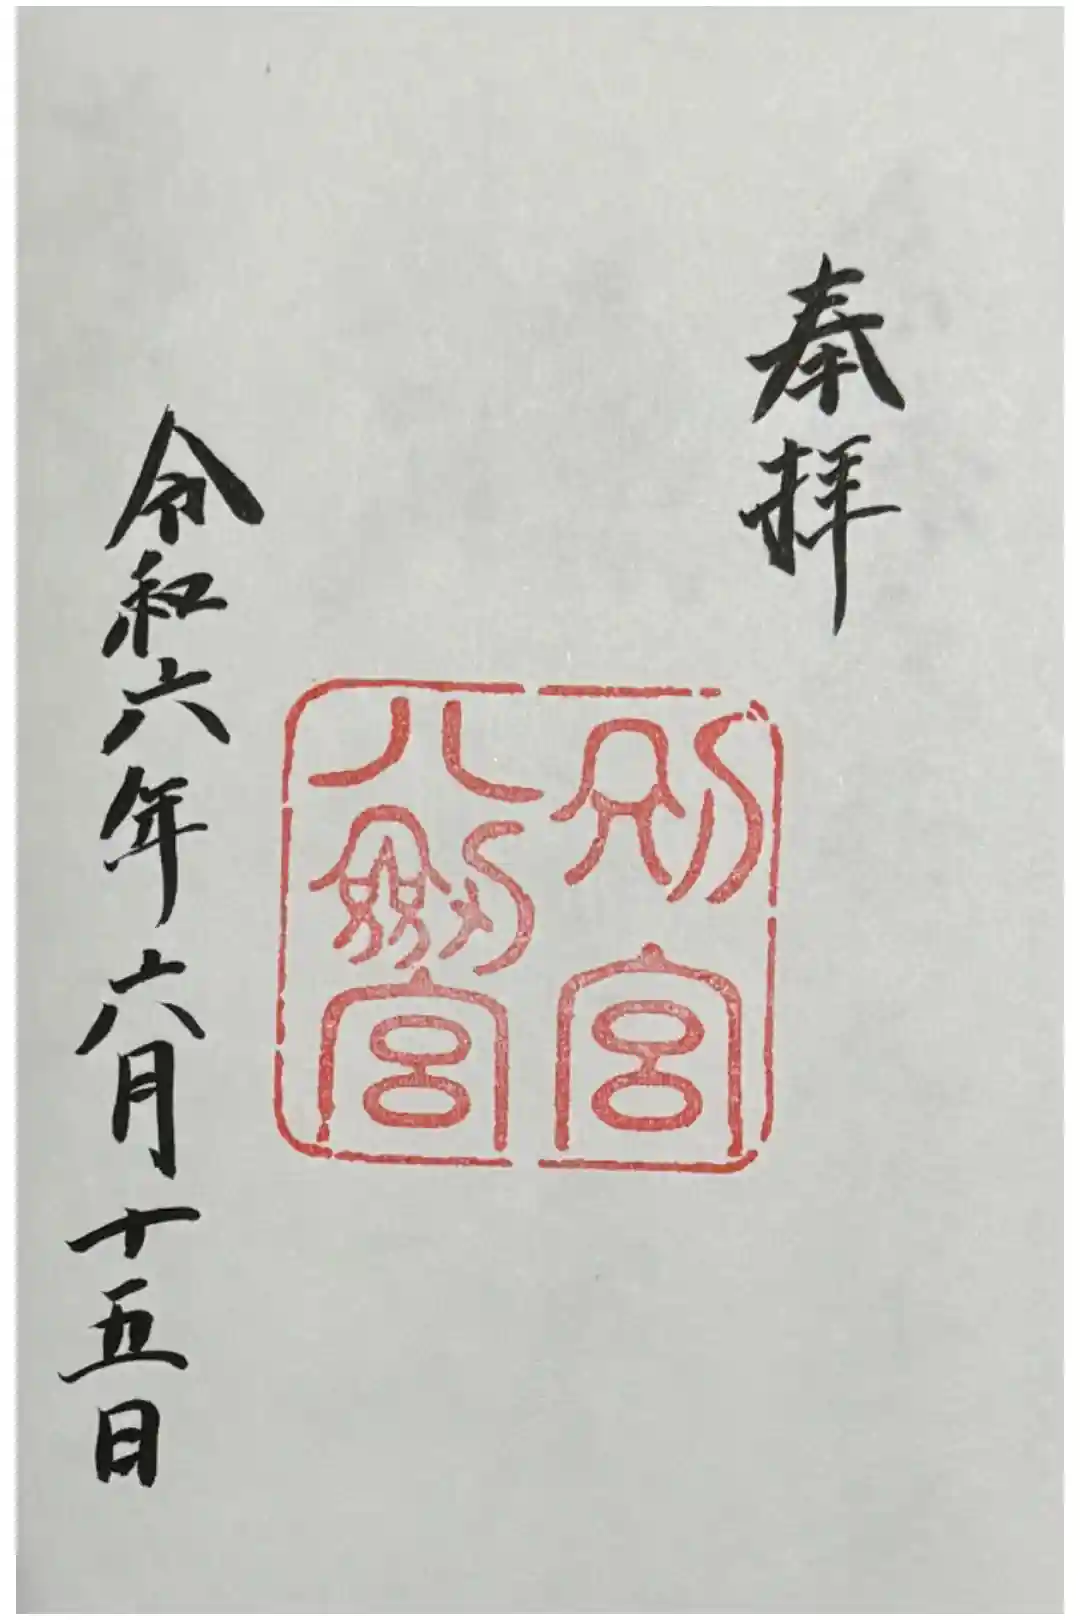 奉拝
別宮
八劔宮
令和六年六月十五日